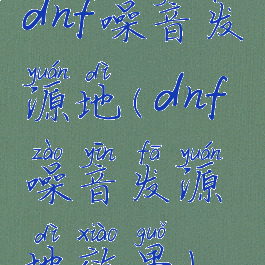 dnf噪音发
yuán dì
源地(dnf
zào yīn fā yuán
噪音发源
dì xiào guǒ
地效果)